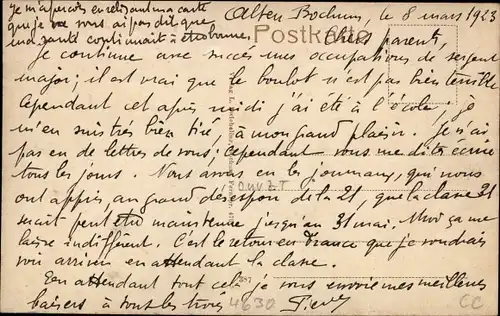 je m'aperçois en relisant ma carte
que je ne vous ai pas dit que
ma santé continuait à être bonne.
Alten Bochum, le 8 mars 1923
Postkarte
Chers parents,
Je continue avec succès mes occupations de sergent
major; il est vrai que le boulot n'est pas bien terrible
Cependant cet après midi j'ai été à l'école, je
m'en suis très bien tiré, à mon grand plaisir. Je n'ai
pas eu de lettres de vous; cependant vous me dites écrire
tous les jours. Nous avons eu les journaux, qui nous
ont appris, au grand désespoir de la 21, que la classe 21
serait peut être maintenue jusqu'au 31 mai. Moi ça me
laisse indifférent. C'est le retour en France que je voudrais
voir arriver en attendant la classe.
En attendant tout cela je vous envoie mes meilleurs
baisers à tous les trois
Pierre
4630
CC